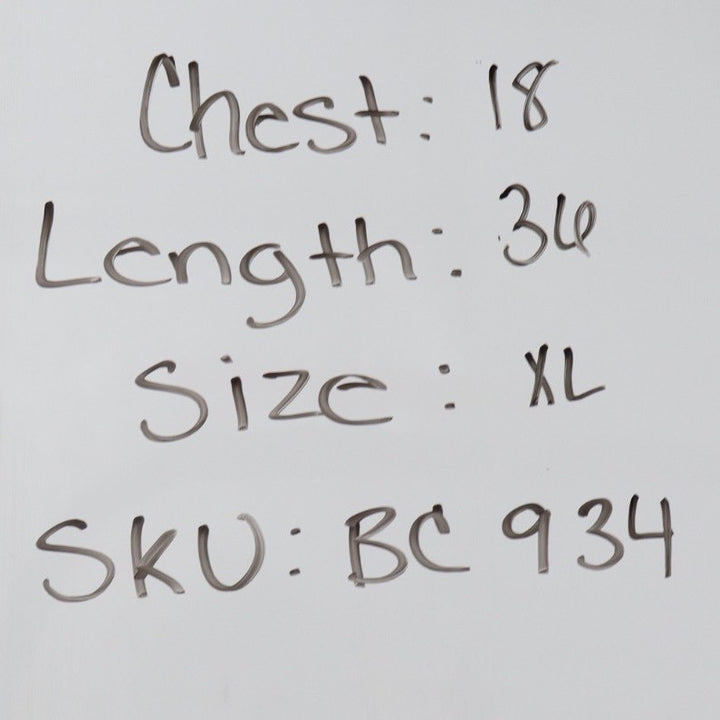 Chest: 18
Length: 36
Size: XL
SKU: BC 934